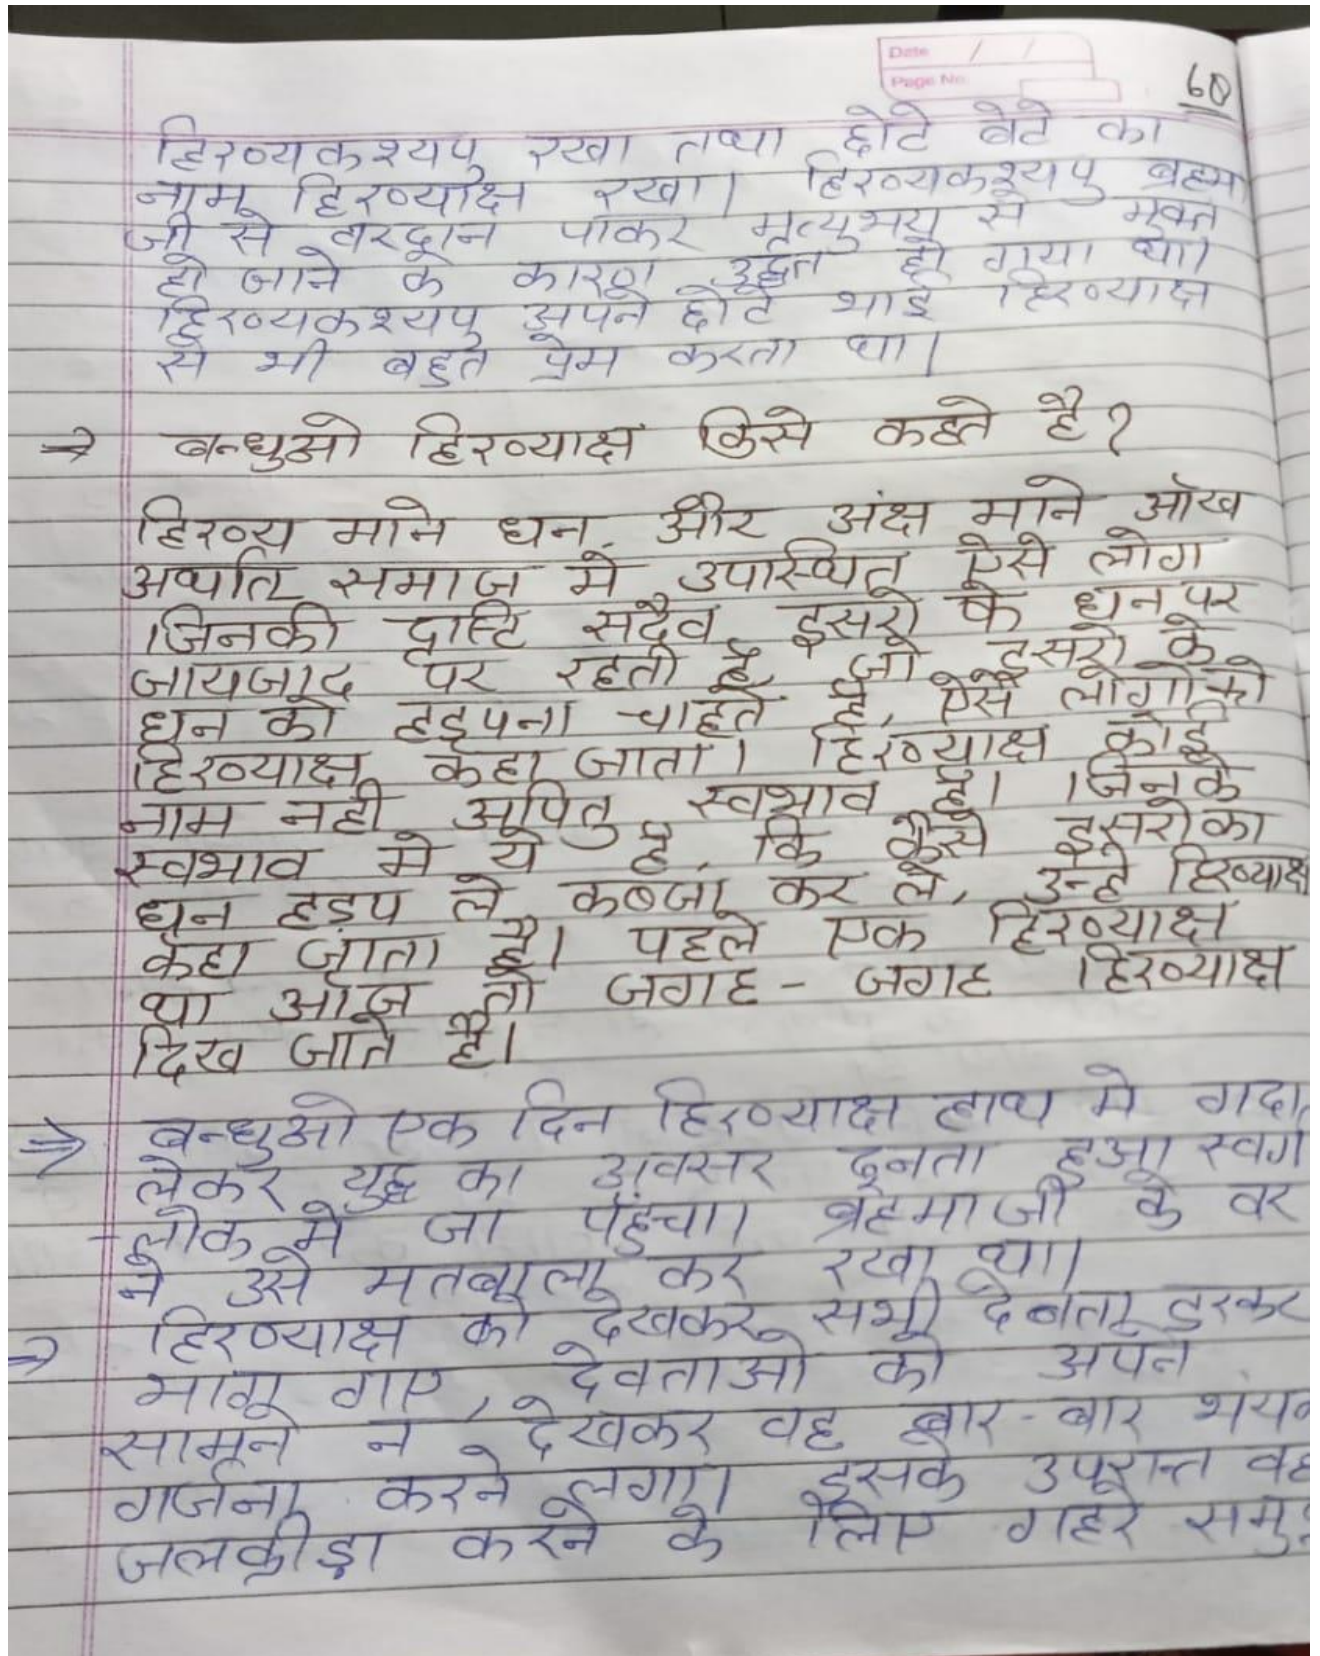 Date / /
Page No.
60
हिरण्यकश्यपु रखा तथा छोटे बेटे का
नाम हिरण्याक्ष रखा। हिरण्यकश्यपु ब्रहम
जी से वरदान पाकर मृत्युभय से मुक्त
हो जाने के कारण उद्धत हो गया था।
हिरण्यकश्यपु अपने छोटे भाई हिरण्याक्ष
से भी बहुत प्रेम करता था।
→ बन्धुओ हिरण्याक्ष किसे कहते है?
हिरण्य माने धन, और अंक्ष माने ऑख
अर्थात समाज मे उपास्थित ऐसे लोग
जिनकी द्रास्टि सदैव दूसरो के धन पर
जायजाद पर रहती है, जो दूसरो के
धन को हड़पना चाहते है, ऐसे लोगो को
हिरण्याक्ष कहा जाता। हिरण्याक्ष कोई
नाम नही अपितु स्वभाव है। जिनके
स्वभाव मे ये है, कि कैसे दूसरो का
धन हड़प ले कब्जा कर ले, उन्हे हिरण्याक्ष
कहा जाता है। पहले एक हिरण्याक्ष
था आज तो जगह - जगह हिरण्याक्ष
दिख जाते है।
⇒ बन्धुओ एक दिन हिरण्याक्ष हाथ मे गदा
लेकर युद्ध का अवसर ढूनता हुआ स्वर्ग
लोक मे जा पहुंचा। ब्रहमाजी के वर
ने उसे मतबाला कर रखा था।
→ हिरण्याक्ष को देखकर सभी देवता डरकर
भाग गए, देवताओ को अपने
सामने न देखकर वह बार - बार भंय
गर्जना करने लगा। इसके उपरान्त वह
जलक्रीड़ा करने के लिए गहरे समु